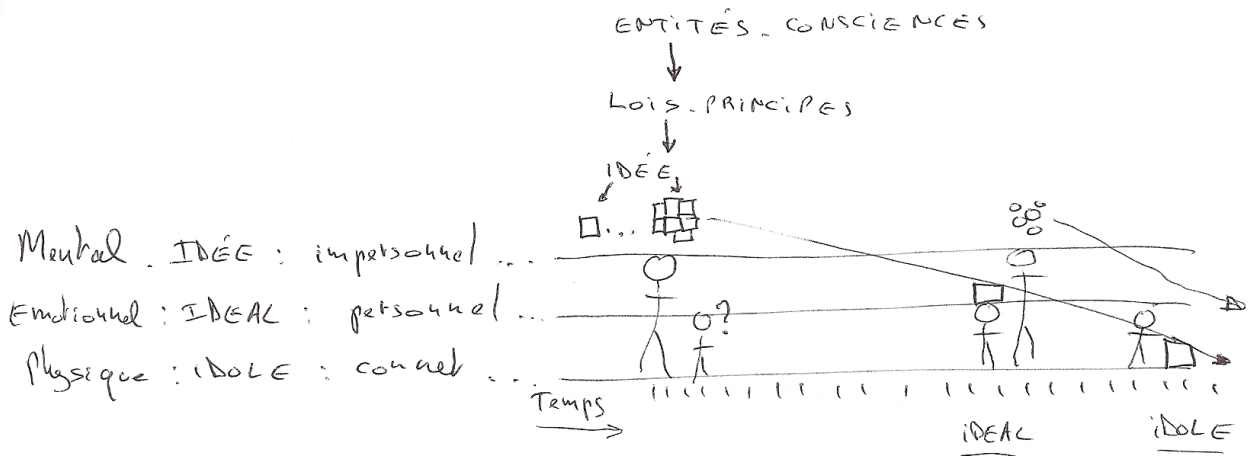 ENTITÉS. CONSCIENCES
LOIS. PRINCIPES
IDÉE
Mental. IDÉE : impersonnel...
Emotionnel : IDEAL : personnel...
?
Physique : iDOLE : connet...
Temps
iDEAL
iDOLE